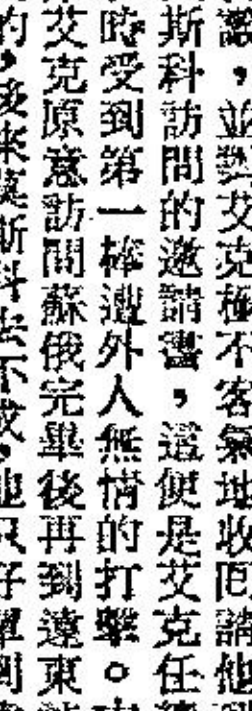 ，並對艾克極不客氣地收回請他
斯科訪問的邀請書，這便是艾克任
時受到第一棒遭外人無情的打擊。
艾克原意訪問蘇俄完畢後再到遠東
，後來莫斯科去不成，他只好單到